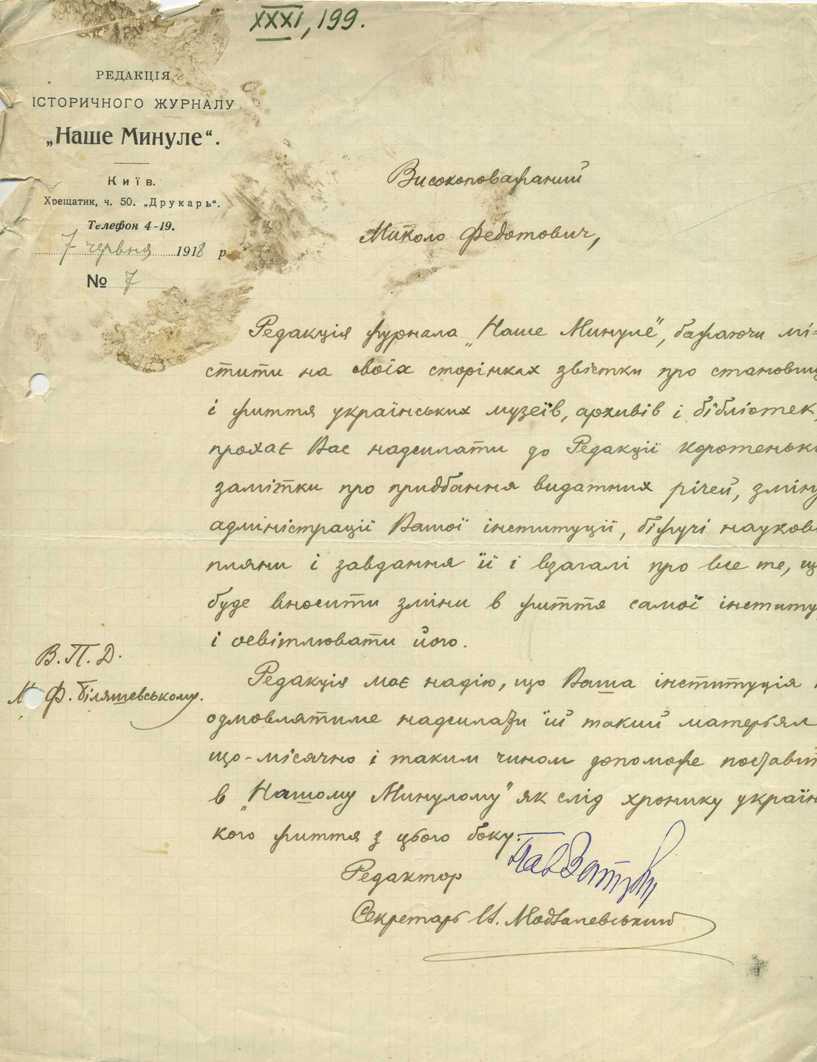 XXXI, 199.
РЕДАКЦІЯ
ІСТОРИЧНОГО ЖУРНАЛУ
„Наше Минуле“.
Київ.
Хрещатик, ч. 50. „Друкарь“.
Телефон 4-19.
7 червня 1918 р
№ 7
Високоповажаний
Миколо Федотович,
Редакція журнала „Наше Минуле“, бажаючи мі-
стити на своїх сторінках звістки про становищ
і життя українських музеїв, архивів і бібліотек,
прохає Вас надсилати до Редакції коротеньки
замітки про придбання видатних річей, зміну
адміністрації Вашої інституції, біжучі наукові
пляни і завдання її і взагалі про все те, що
буде вносити зміни в життя самої інституц
і освітлювати його.
В. П. Д.
М. Ф. Біляшевському.
Редакція має надію, що Ваша інституція
одмовлятиме надсилати їй такий матерьял
що-місячно і таким чином допоможе поставит
в „Нашому Минулому“ як слід хронику україн
кого життя з цього боку.
Редактор
Секретарь
Модзалевський